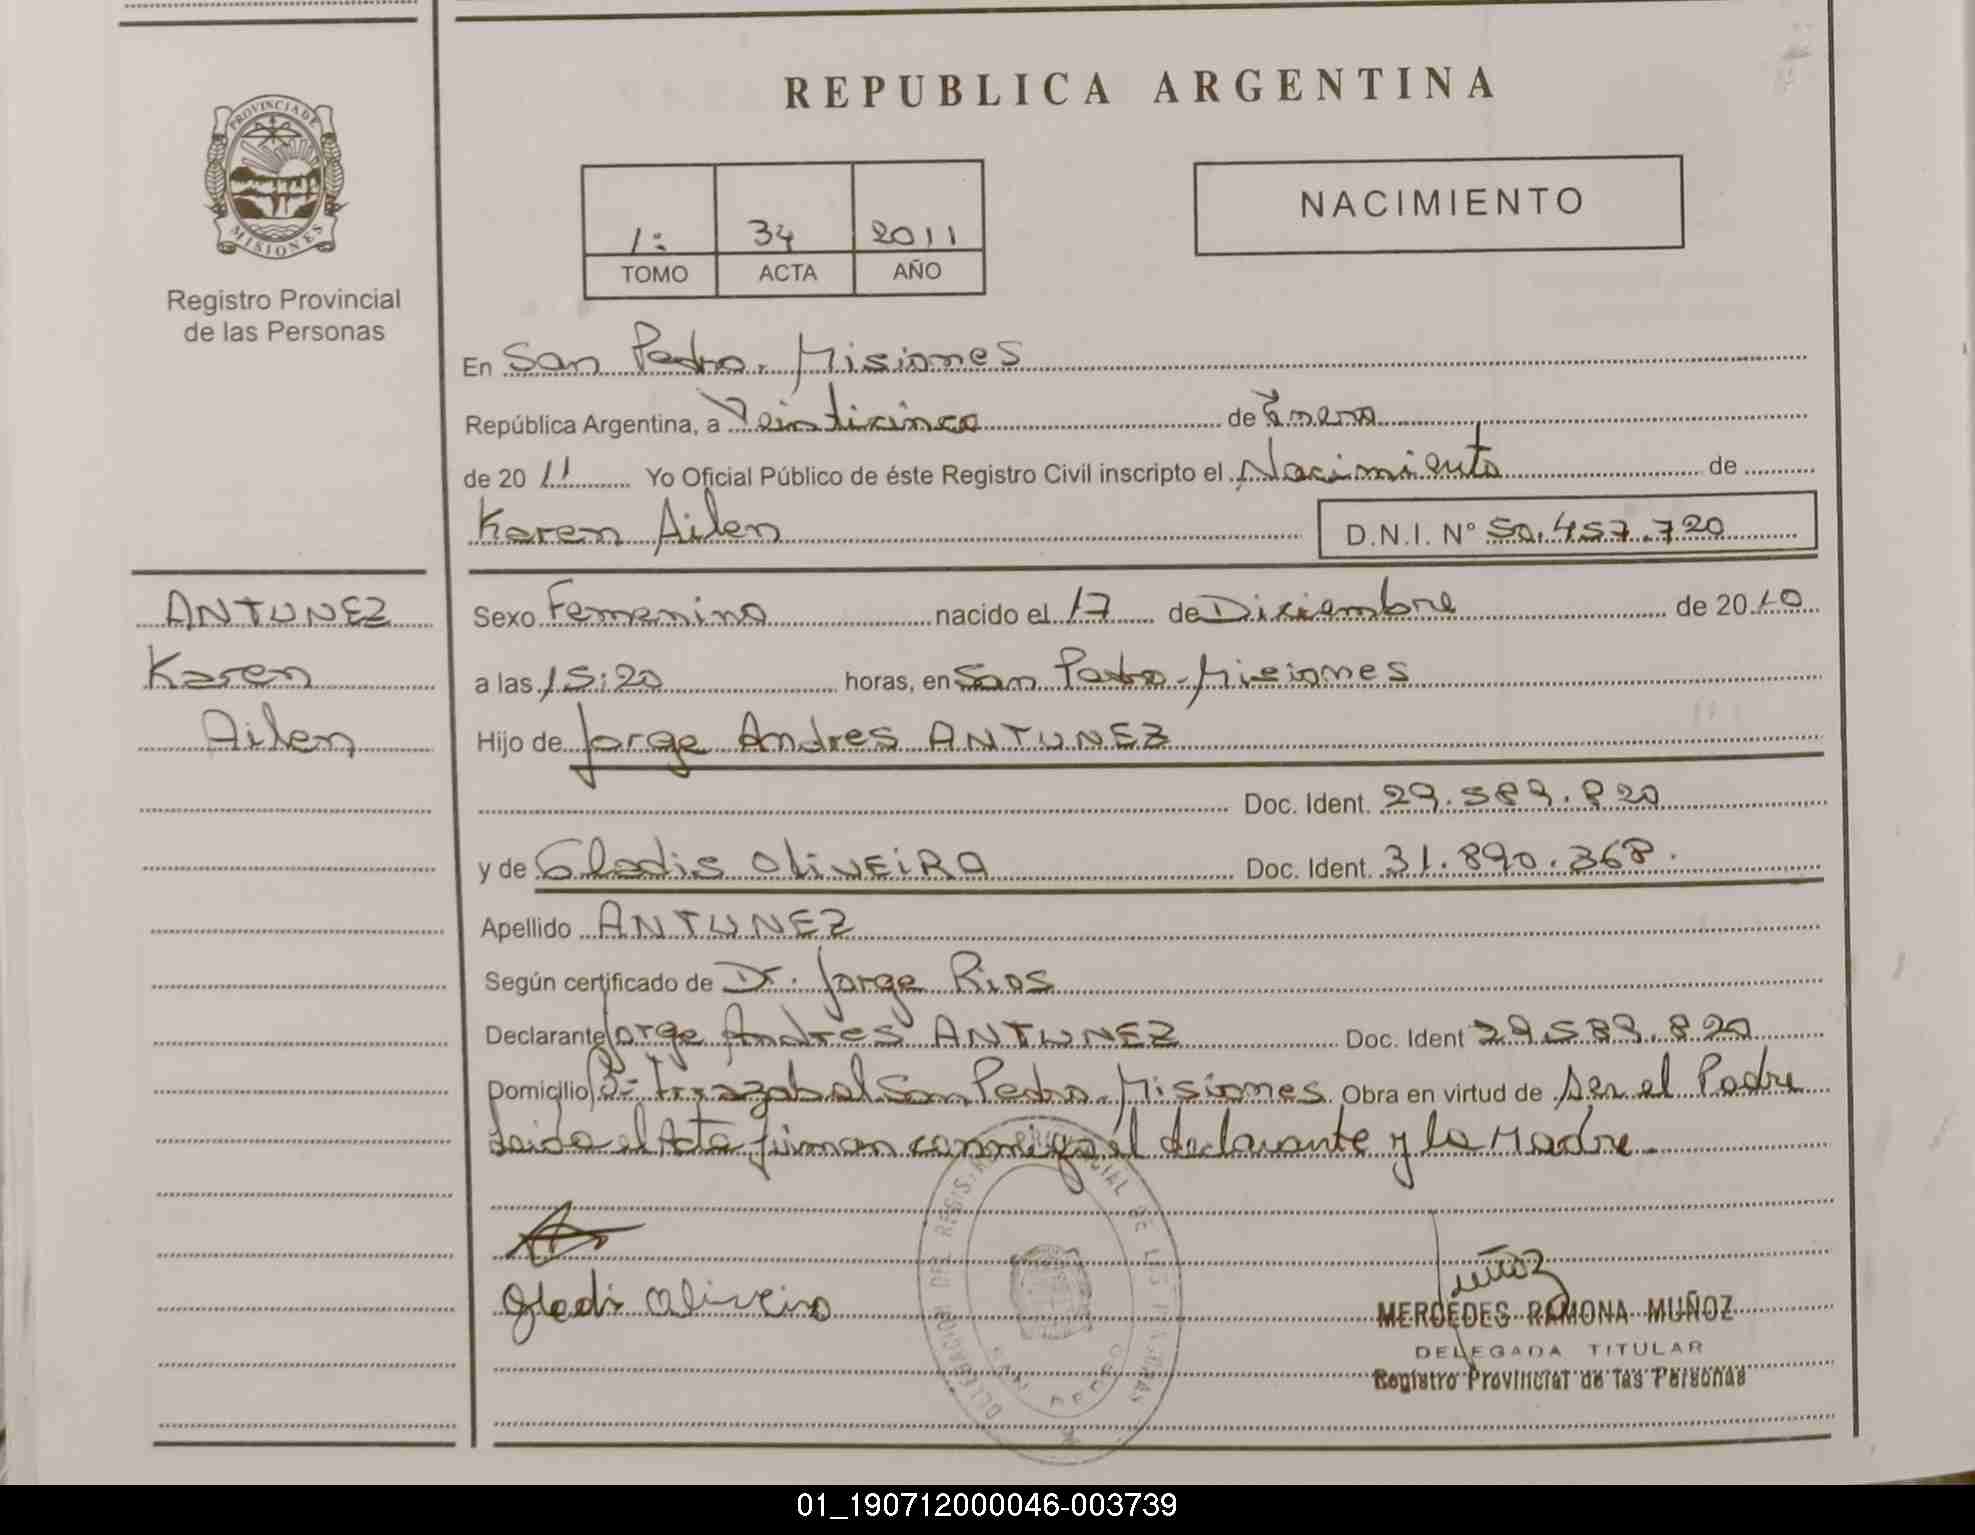 REPUBLICA ARGENTINA
PROVINCIA DE MISIONES
Registro Provincial
de las Personas
1: 34 2011
TOMO ACTA AÑO
NACIMIENTO
En San Pedro. Misiones
República Argentina, a Veinticinco de Enero
de 20 11 Yo Oficial Público de éste Registro Civil inscripto el Nacimiento de
Karen Ailen D.N.I. Nº 50.457.720
ANTUNEZ
Karen
Ailen
Sexo Femenino nacido el 17 de Diciembre de 20 10
a las 15:20 horas, en San Pedro - Misiones
Hijo de Jorge Andres ANTUNEZ
Doc. Ident. 29.589.820
y de Gladis OLIVEIRA Doc. Ident. 31.890.368.
Apellido ANTUNEZ
Según certificado de Dr. Jorge Rios
Declarante Jorge Andres ANTUNEZ Doc. Ident 29.589.820
Domicilio Bº Irrazabal San Pedro. Misiones. Obra en virtud de ser el Padre
Leida el Acta firman conmigo el declarante y la Madre.
Gladi Oliveira
DELEGACION DEL REGISTRO PROVINCIAL DE LAS PERSONAS
SAN PEDRO
Muñoz
MERCEDES RAMONA MUÑOZ
DELEGADA TITULAR
Registro Provincial de las Personas
01_190712000046-003739